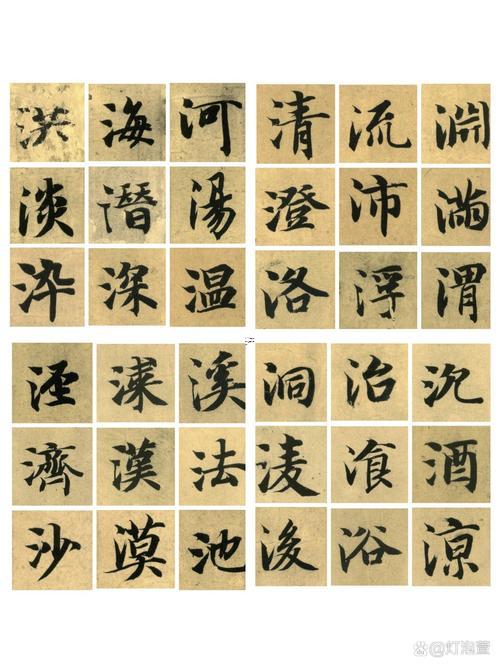 洪海河
淡潛湯
染深温
清流淵
澄沛滿
洛浮渭
涇漆溪
濟漢法
沙漠池
洞治沉
淩湌酒
後浴涼
@灯泡萱